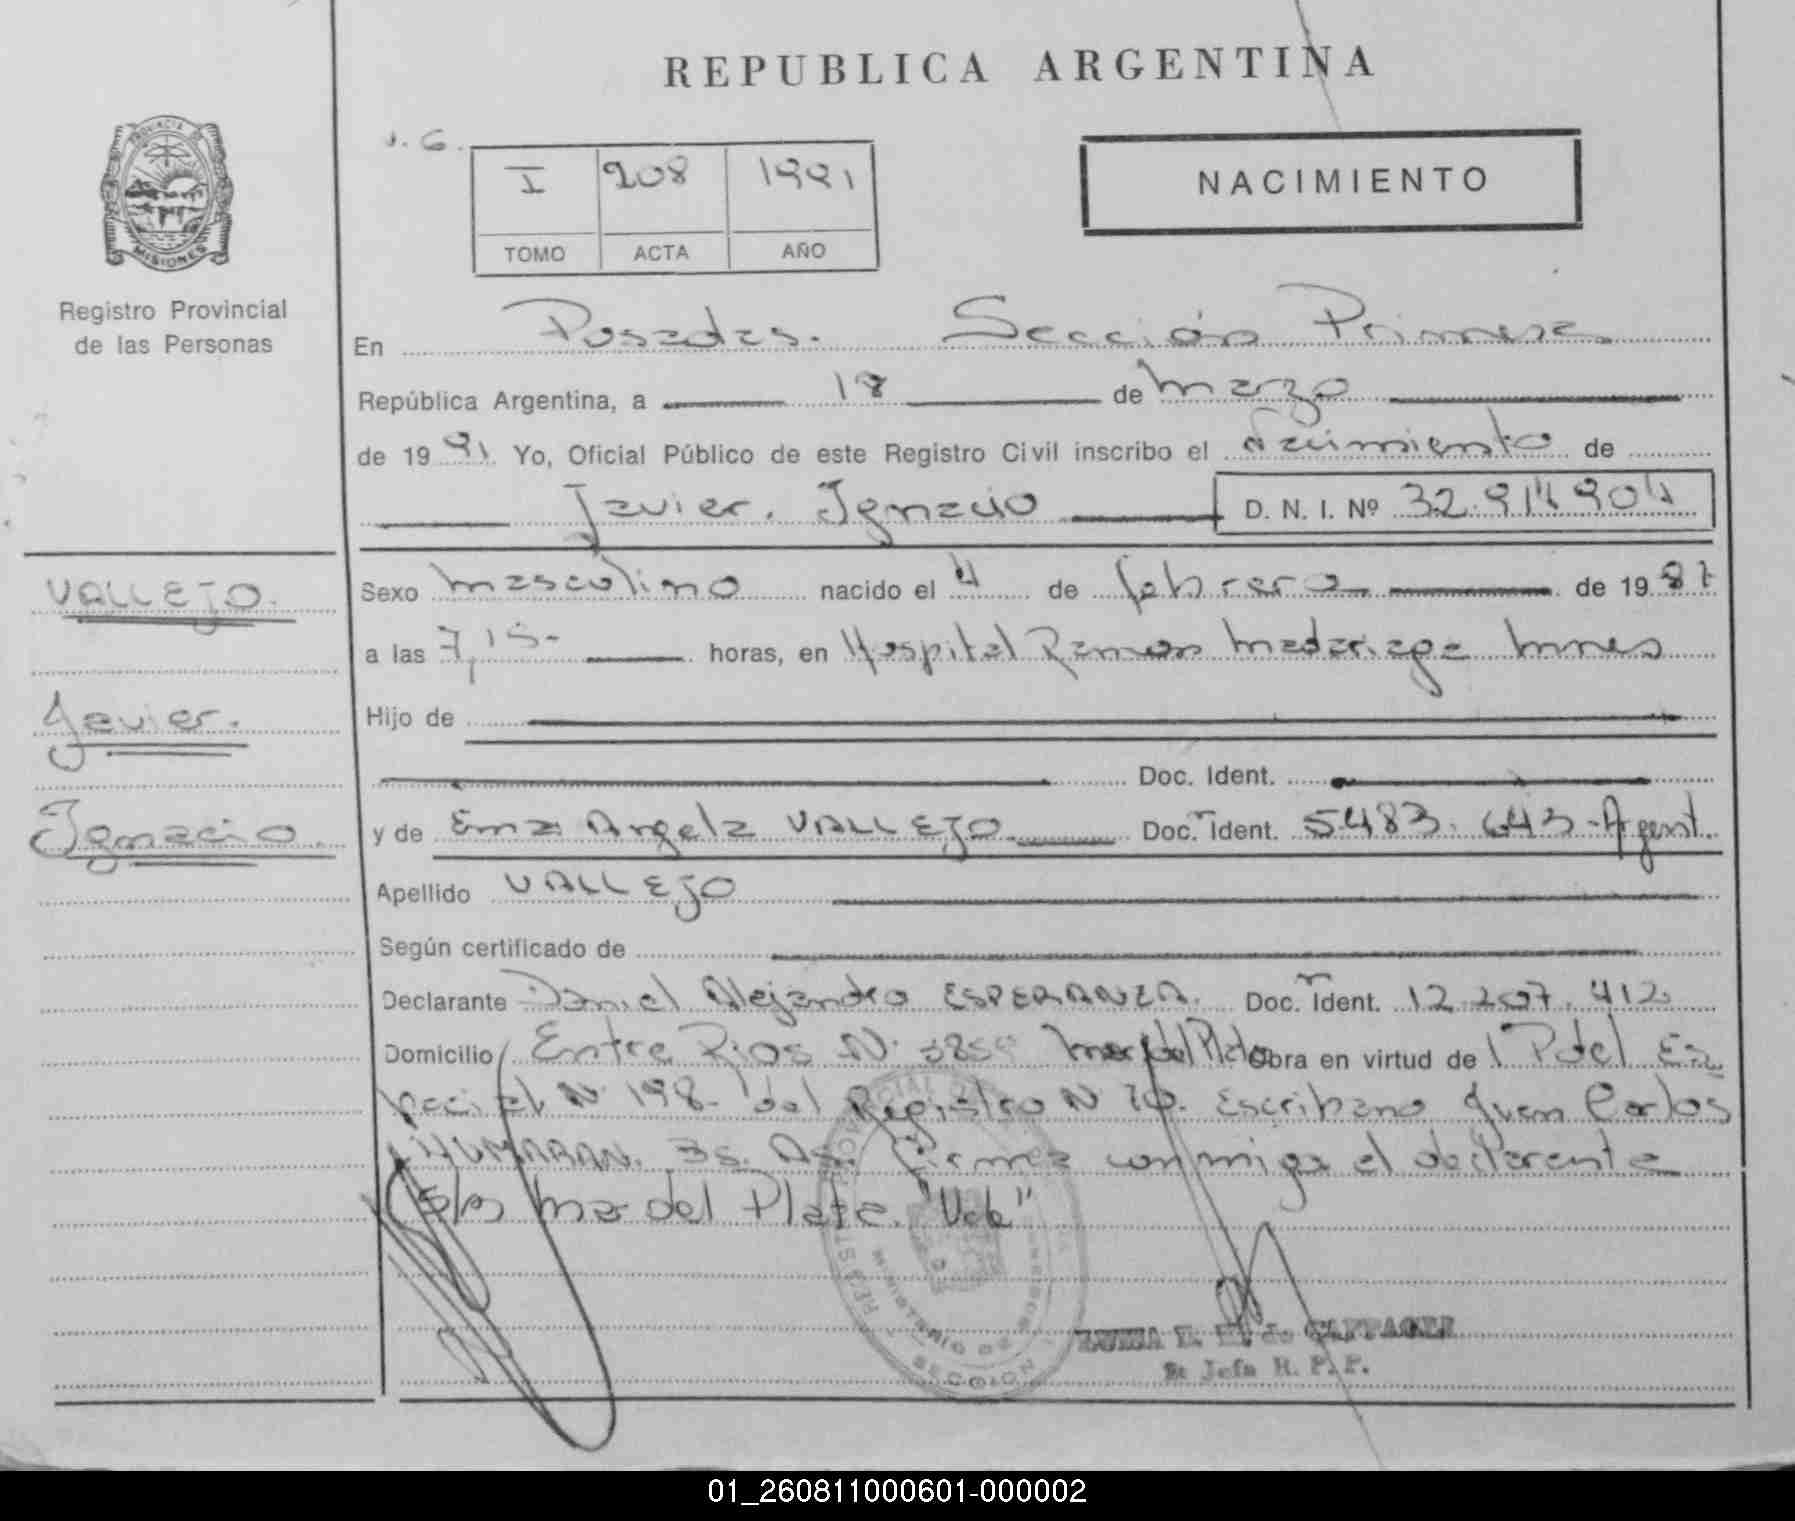 REPUBLICA ARGENTINA
PROVINCIA DE
MISIONES
Registro Provincial
de las Personas
I 208 1991
TOMO ACTA AÑO
NACIMIENTO
En Posadas. Sección Primera
República Argentina, a 18 de marzo
de 19 91 Yo, Oficial Público de este Registro Civil inscribo el nacimiento de
Javier. Ignacio D. N. I. Nº 32.914904
VALLEJO.
Javier.
Ignacio.
Sexo masculino nacido el 4 de febrero de 19 87
a las 7,15- horas, en Hospital Ramon Madariaga
Hijo de
Doc. Ident.
y de Ema Angela VALLEJO Doc. Ident. 5.483.643-Argent.
Apellido VALLEJO
Según certificado de
Declarante Daniel Alejandro ESPERANZA. Doc. Ident. 12.207.412
Domicilio Entre Rios Nº Mar del Plata Obra en virtud de Pdel Es
pecial Nº 198- del Registro Nº 70. Escribano Juan Carlos
Bs. As. firma conmigo el declarante
S/as Mar del Plata. "Vale"
MINISTERIO DE
SECCION
de
Jefa R. P. P.
01_260811000601-000002